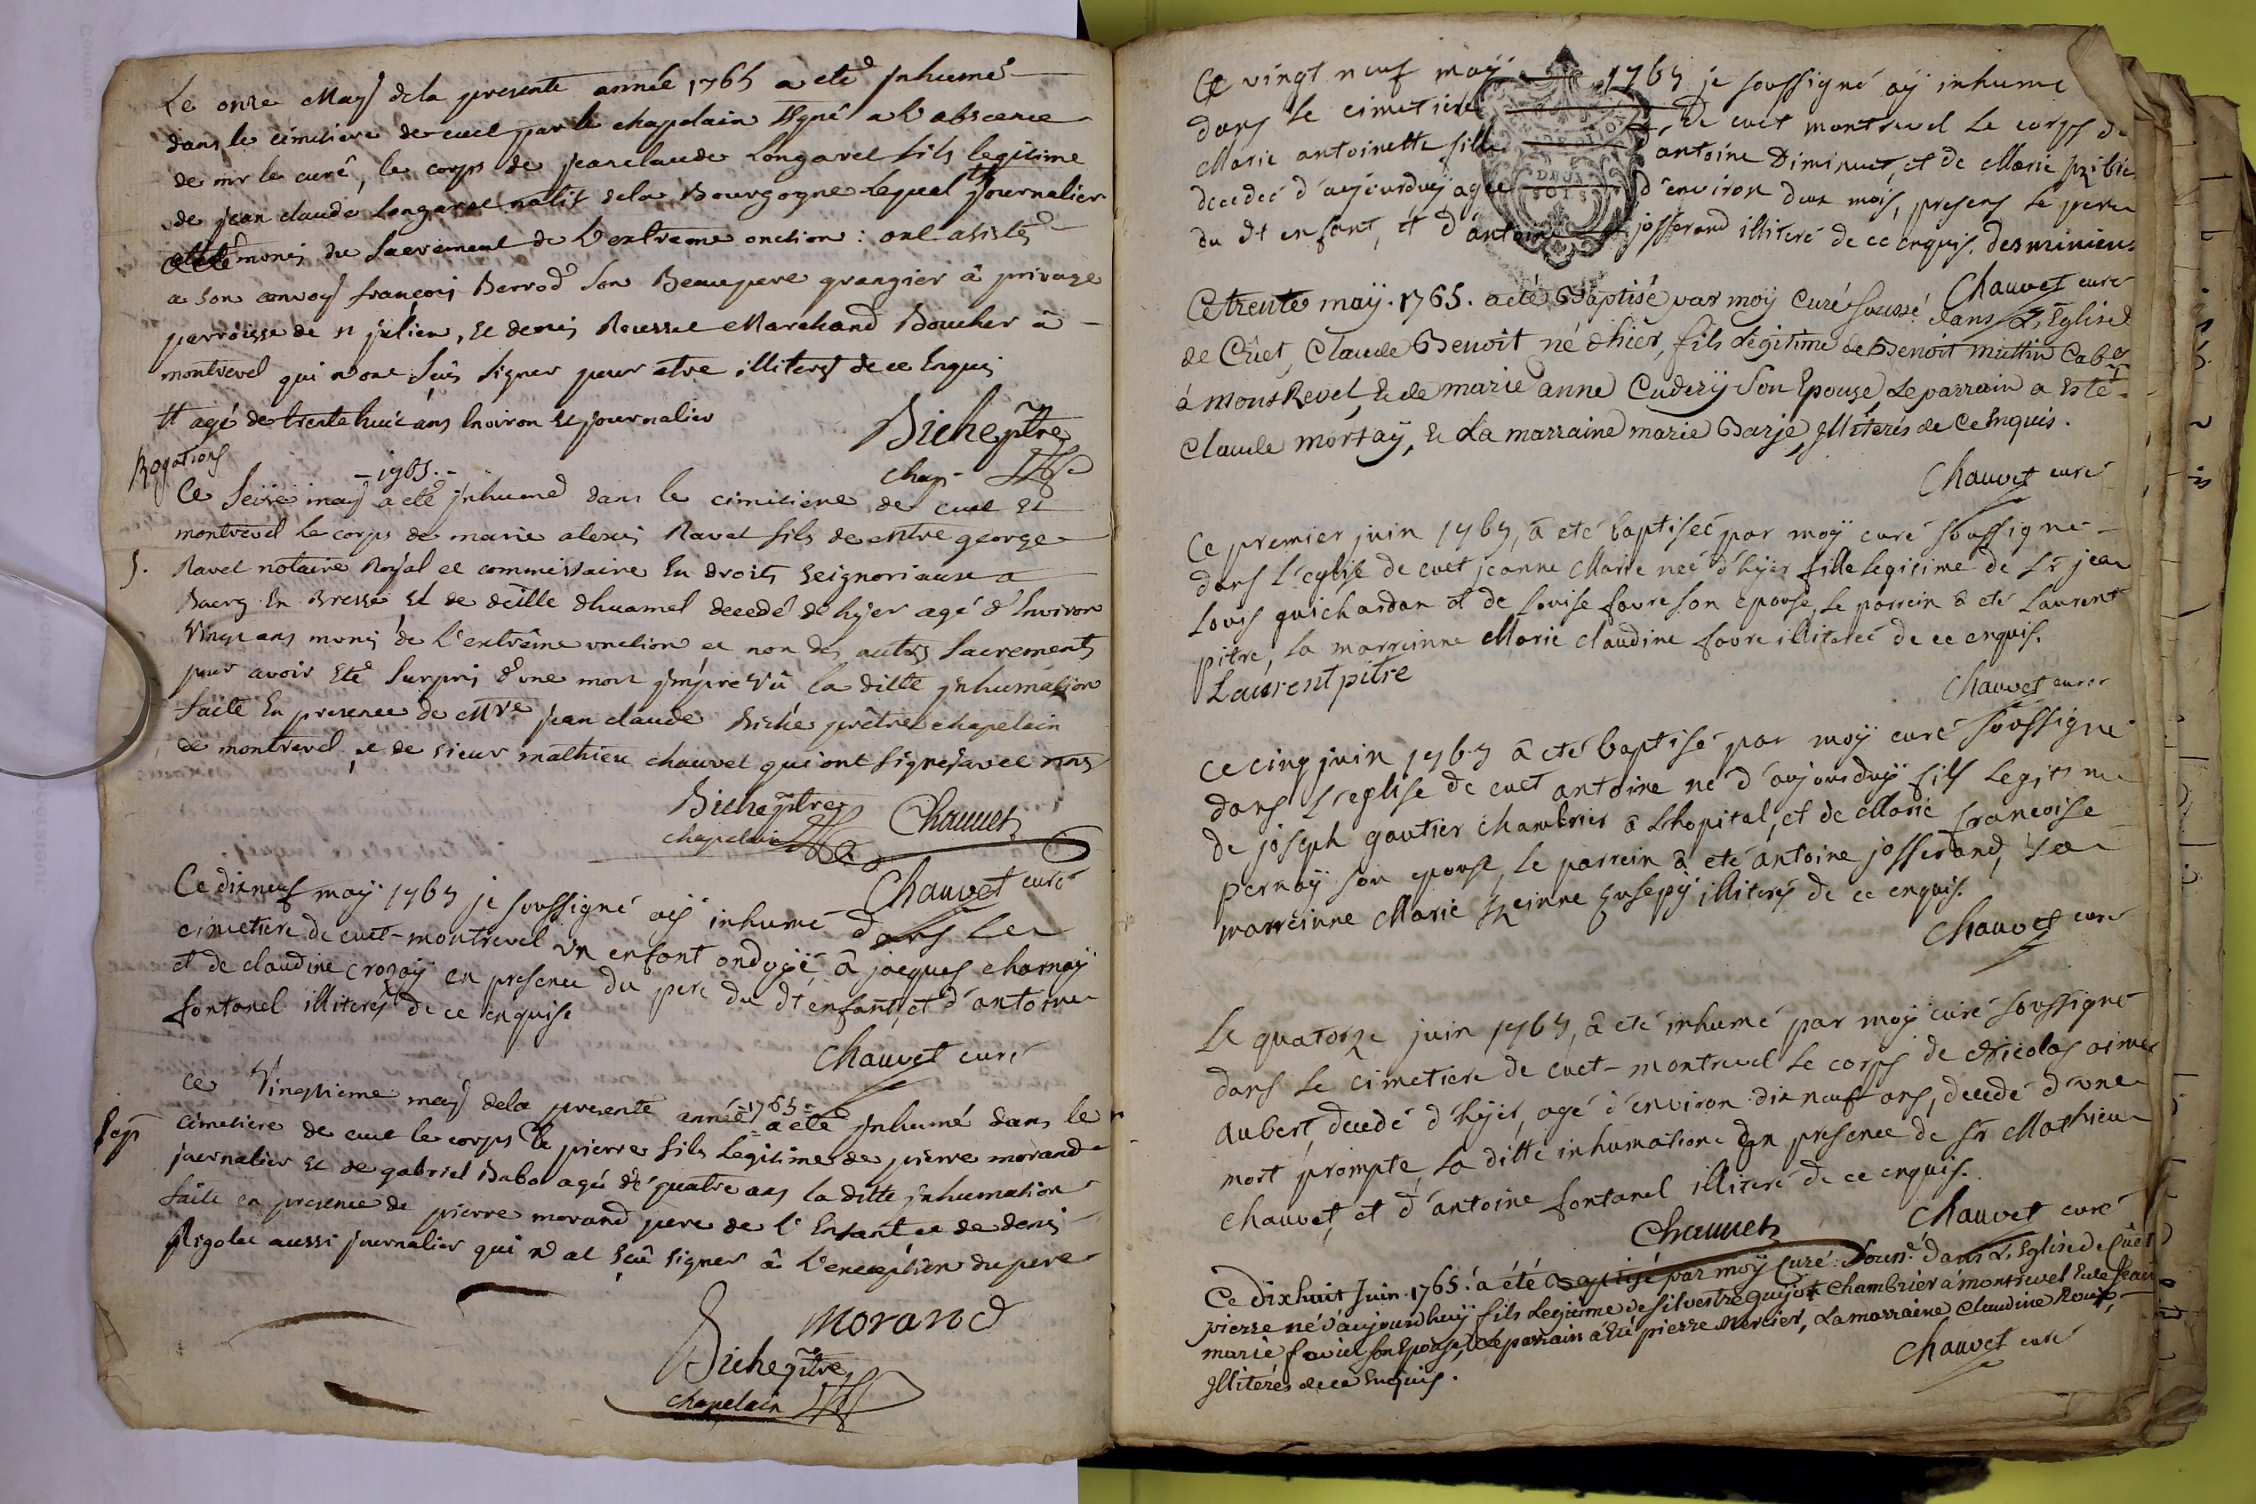 Le onze May dela presente année 1765 a eté Jnhumé
dans le cimitiere de cuet par le chapelain signé a l'abscence
de mr le curé, le corps de jeanclaude Longaret fils legitime
de jean claude Longaret natif dela Bourgogne lequel # journalier
a eté munis du sacrement de l'extreme onction : ont asistés
a son convoy françois Berrod son Beaupere grangier â privage
parroisse de st julien, et denis Roussel Marchand Boucher â
montrevel qui n'ont sçus signer pour etre illiterés de ce Enquis
# agé de trente huit ans Environ et journalier
Biche ptre
chap-
Rogations
- 1765. -
Ce seize may a eté Jnhumé dans le cimitiere de cuet et
montrevel le corps de marie alexis Ravet fils de entre george
5. Ravet notaire Royal et commissaire En droits seignoriaux a
Bourg En Bresse et de deille dhuamel decedé d'hyer agé d'Environ
Vingt ans munis de l'extrême onction et non des autres sacrements
pour avoir eté surpris d'une mort jmprevû la ditte jnhumation
faite En presence de Mre jean claude Biche prêtre chapelain
de montrevel, et de sieur mathieu chauvet qui ont signés avec nous
Biche ptre
chapelain
Chauvet
Chauvet curé
Ce dixneuf may 1765 je soussigné ay inhumé dans le
cimetiere de cuet-montrevel un enfant ondoyé â jacques charnay
et de claudine crozay en presence du pere du dt enfant, et d'antoine
fontanel illiterés de ce enquise
Chauvet curé
ce Vingtieme may dela presente année =1765= a eté jnhumé dans le
cimetiere de cuet le corps de pierre fils Legitime de pierre morand
journalier et de gabriel Babo agé de quatre ans la ditte jnhumation
faite en presence de pierre morand pere de l'Enfant et de denis
Rigolet aussi journalier qui n'at sçu signer â l'exception du pere
Morand
Biche ptre
chapelain
Ce vingt neuf may 1765 je soussigné ay inhume
dans le cimetiere de cuet montrevel le corps de
Marie antoinette fille d'antoine Diminuet, et de Marie
decedeé d'aujourduy ageé d'environ deux mois, presens le pere
du dt enfant, et d'antoine josserand illiteré de ce enquis. desminieu
Chauvet curé
Ce trente may. 1765. a eté Baptisé par moy Curé soussé dans L'Eglise
de Cuet, Claude Benoit né d'hier, fils Légitime de Benoit muttin Cabt
à monsRevel, & de marie anne Cudery son Epouse, Le parrain a Esté
Claude mortay, & La marraine marie Barje, Jlliterés de Ce Enquis.
Chauvet curé
Ce premier juin 1765, â eté baptiseé par moy curé soussigné
dans l'eglise de cuet jeanne Marie neé d'hyer fille legitime de Sr jean
Louis guichardan et de Louise favre son epouse, le parrein â eté Laurent
pitre, la marreinne Marie claudine favre illitereé de ce enquis.
Laurent pitre
Chauvet curé
Ce cinq juin 1765 â eté baptisé par moy curé soussigné
dans l'eglise de cuet antoine né d'aujourduy fils legitime
de joseph gautier chambrier â l'hopital, et de Marie francoise
pernay son epouse, le parrein â eté antoine josserand, La
marreinne Marie Reinne Eusepy illiterés de ce enquis.
Chauvet curé
Le quatorze juin 1765, â eté inhumé par moy curé soussigné
dans le cimetiere de cuet-montrevel le corps de Nicolas aimé
Aubert, decedé d'hyer, agé d'environ dix neuf ans, decedé d'une
mort prompte, la ditte inhumation en presence de Sr Mathieu
chauvet, et d'antoine fontanel illiteré de ce enquis.
Chauvet
Chauvet curé
Ce dixhuit Juin. 1765. a été Baptisé par moy Curé Souss.é dans L'Eglise de Cuet
pierre né d'aujourdhuy fils Legitime de Silvestre guyot Chambrier a montrevel Et de Jean
marie favier son Epouse, Le parrain a Eté pierre Mercier, La marraine Claudine Roux,
Jlliterés de ce Enquis.
Chauvet curé